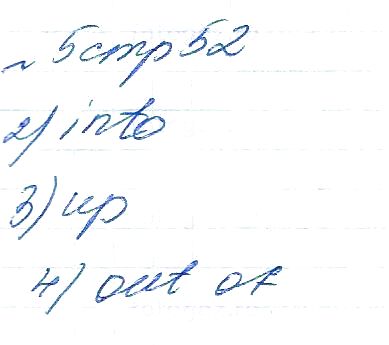 ~ 5 стр 52
2) into
3) up
4) out of